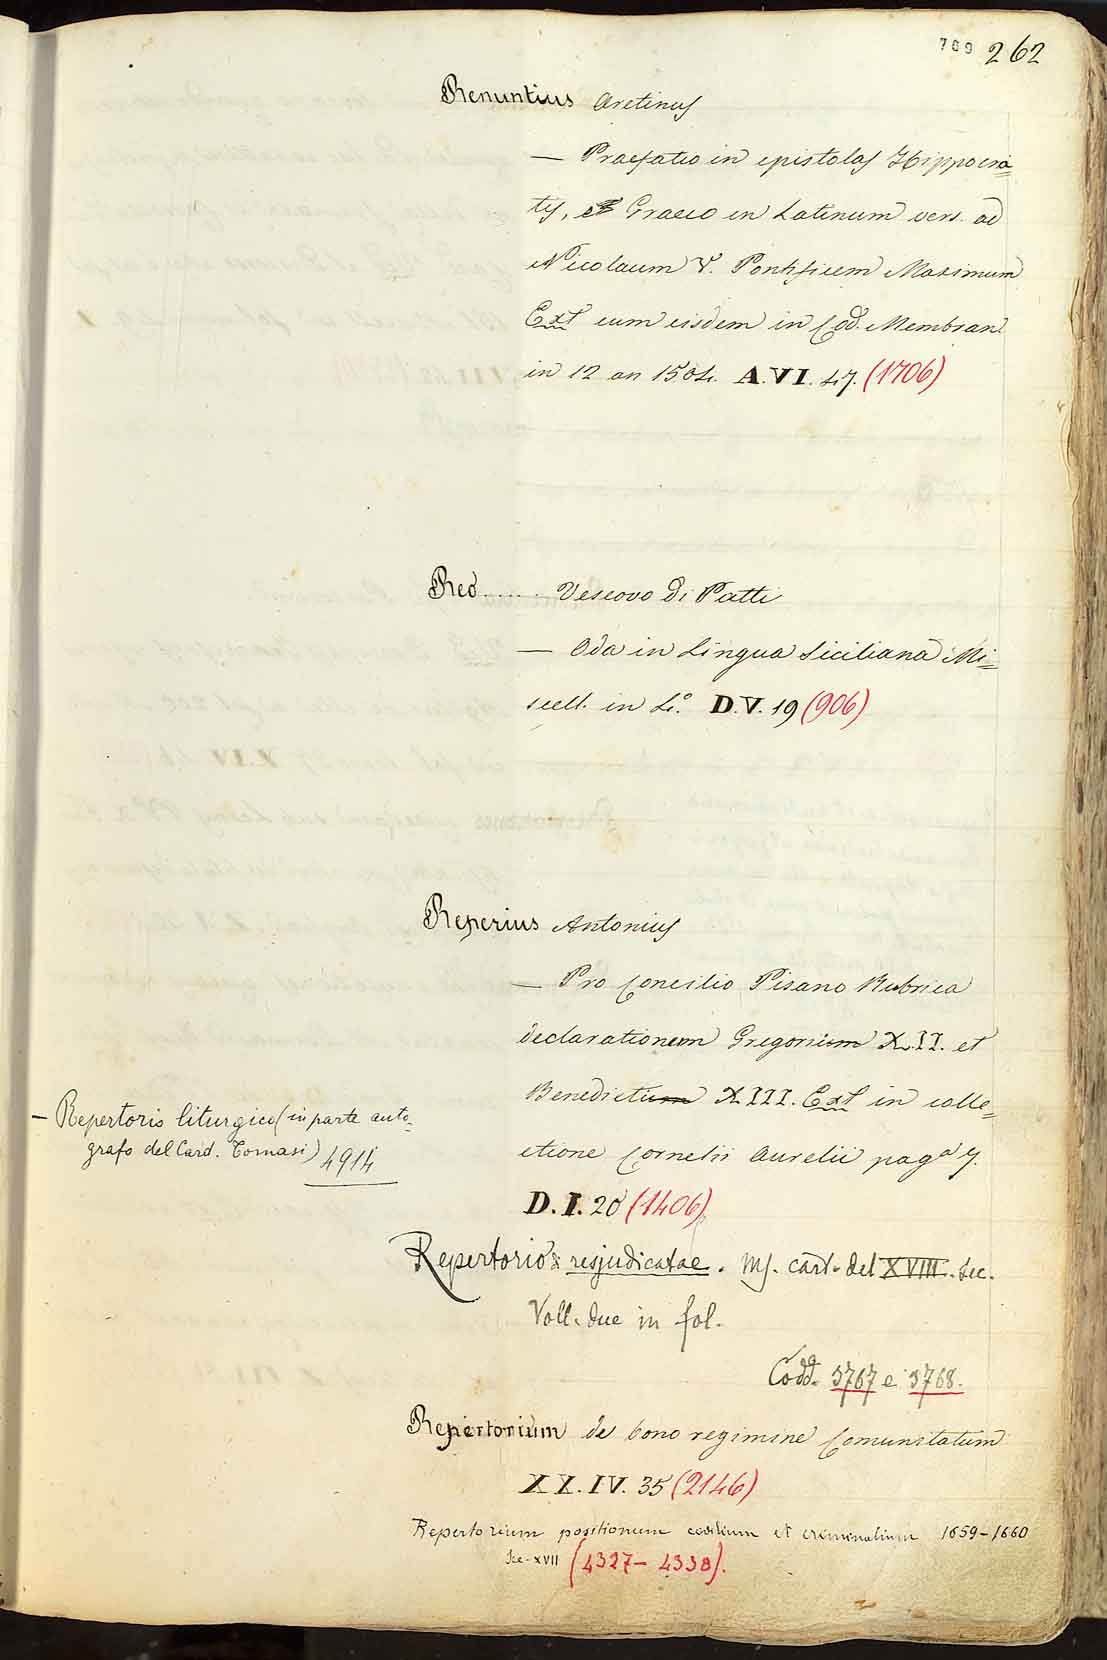 709 262
Renuntius Aretinus
— Praefatio in epistolas Hippocra=
tis, e Graeco in Latinum vers. ad
Nicolaum V. Pontificem Maximum
Ext cum eisdem in Cod. Membran.
in 12 an 1504. A.VI. 47. (1706)
Reo...... Vescovo di Patti
— Oda in Lingua Siciliana Mi=
scell. in 4.° D.V. 19 (906)
Reperius Antonius
— Pro Concilio Pisano Rubrica
declarationem Gregorium X.II. et
Benedictum XIII. Ext in colle=
ctione Cornelii Aurelii pag.a 7.
D.I. 20 (1406)
— Repertorio liturgico (in parte auto-
grafo del Card. Tomasi) 4914
Repertorio resjudicatae. Ms. cart. del XVIII. Sec.
Voll. due in fol.
Codd. 3767 e 3768.
Repertorium de bono regimine Comunitatum
XX.IV. 35 (2146)
Repertorium positionum civilium et criminalium 1659-1660
Sec. XVII (4327-4338).